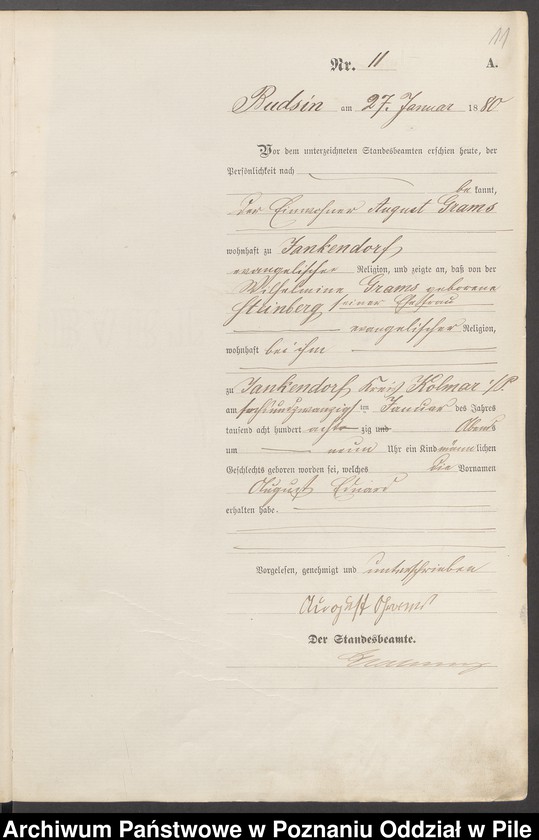 11
Nr. 11 A.
Budsin am 27. Januar 1880
Vor dem unterzeichneten Standesbeamten erschien heute, der
Persönlichkeit nach
bekannt,
der Einwohner August Grams
wohnhaft zu Jankendorf
evangelischer Religion, und zeigte an, daß von der
Wilhelmine Grams geborene
Steinberg seiner Ehefrau
evangelischer Religion,
wohnhaft bei ihm
zu Jankendorf Kreis Kolmar i/P
am sechsundzwanzigsten Januar des Jahres
tausend acht hundert achtzig und Abends
um neun Uhr ein Kind männlichen
Geschlechts geboren worden sei, welches die Vornamen
August Eduard
erhalten habe.
Vorgelesen, genehmigt und unterschrieben
August Grams
Der Standesbeamte.
Archiwum Państwowe w Poznaniu Oddział w Pile